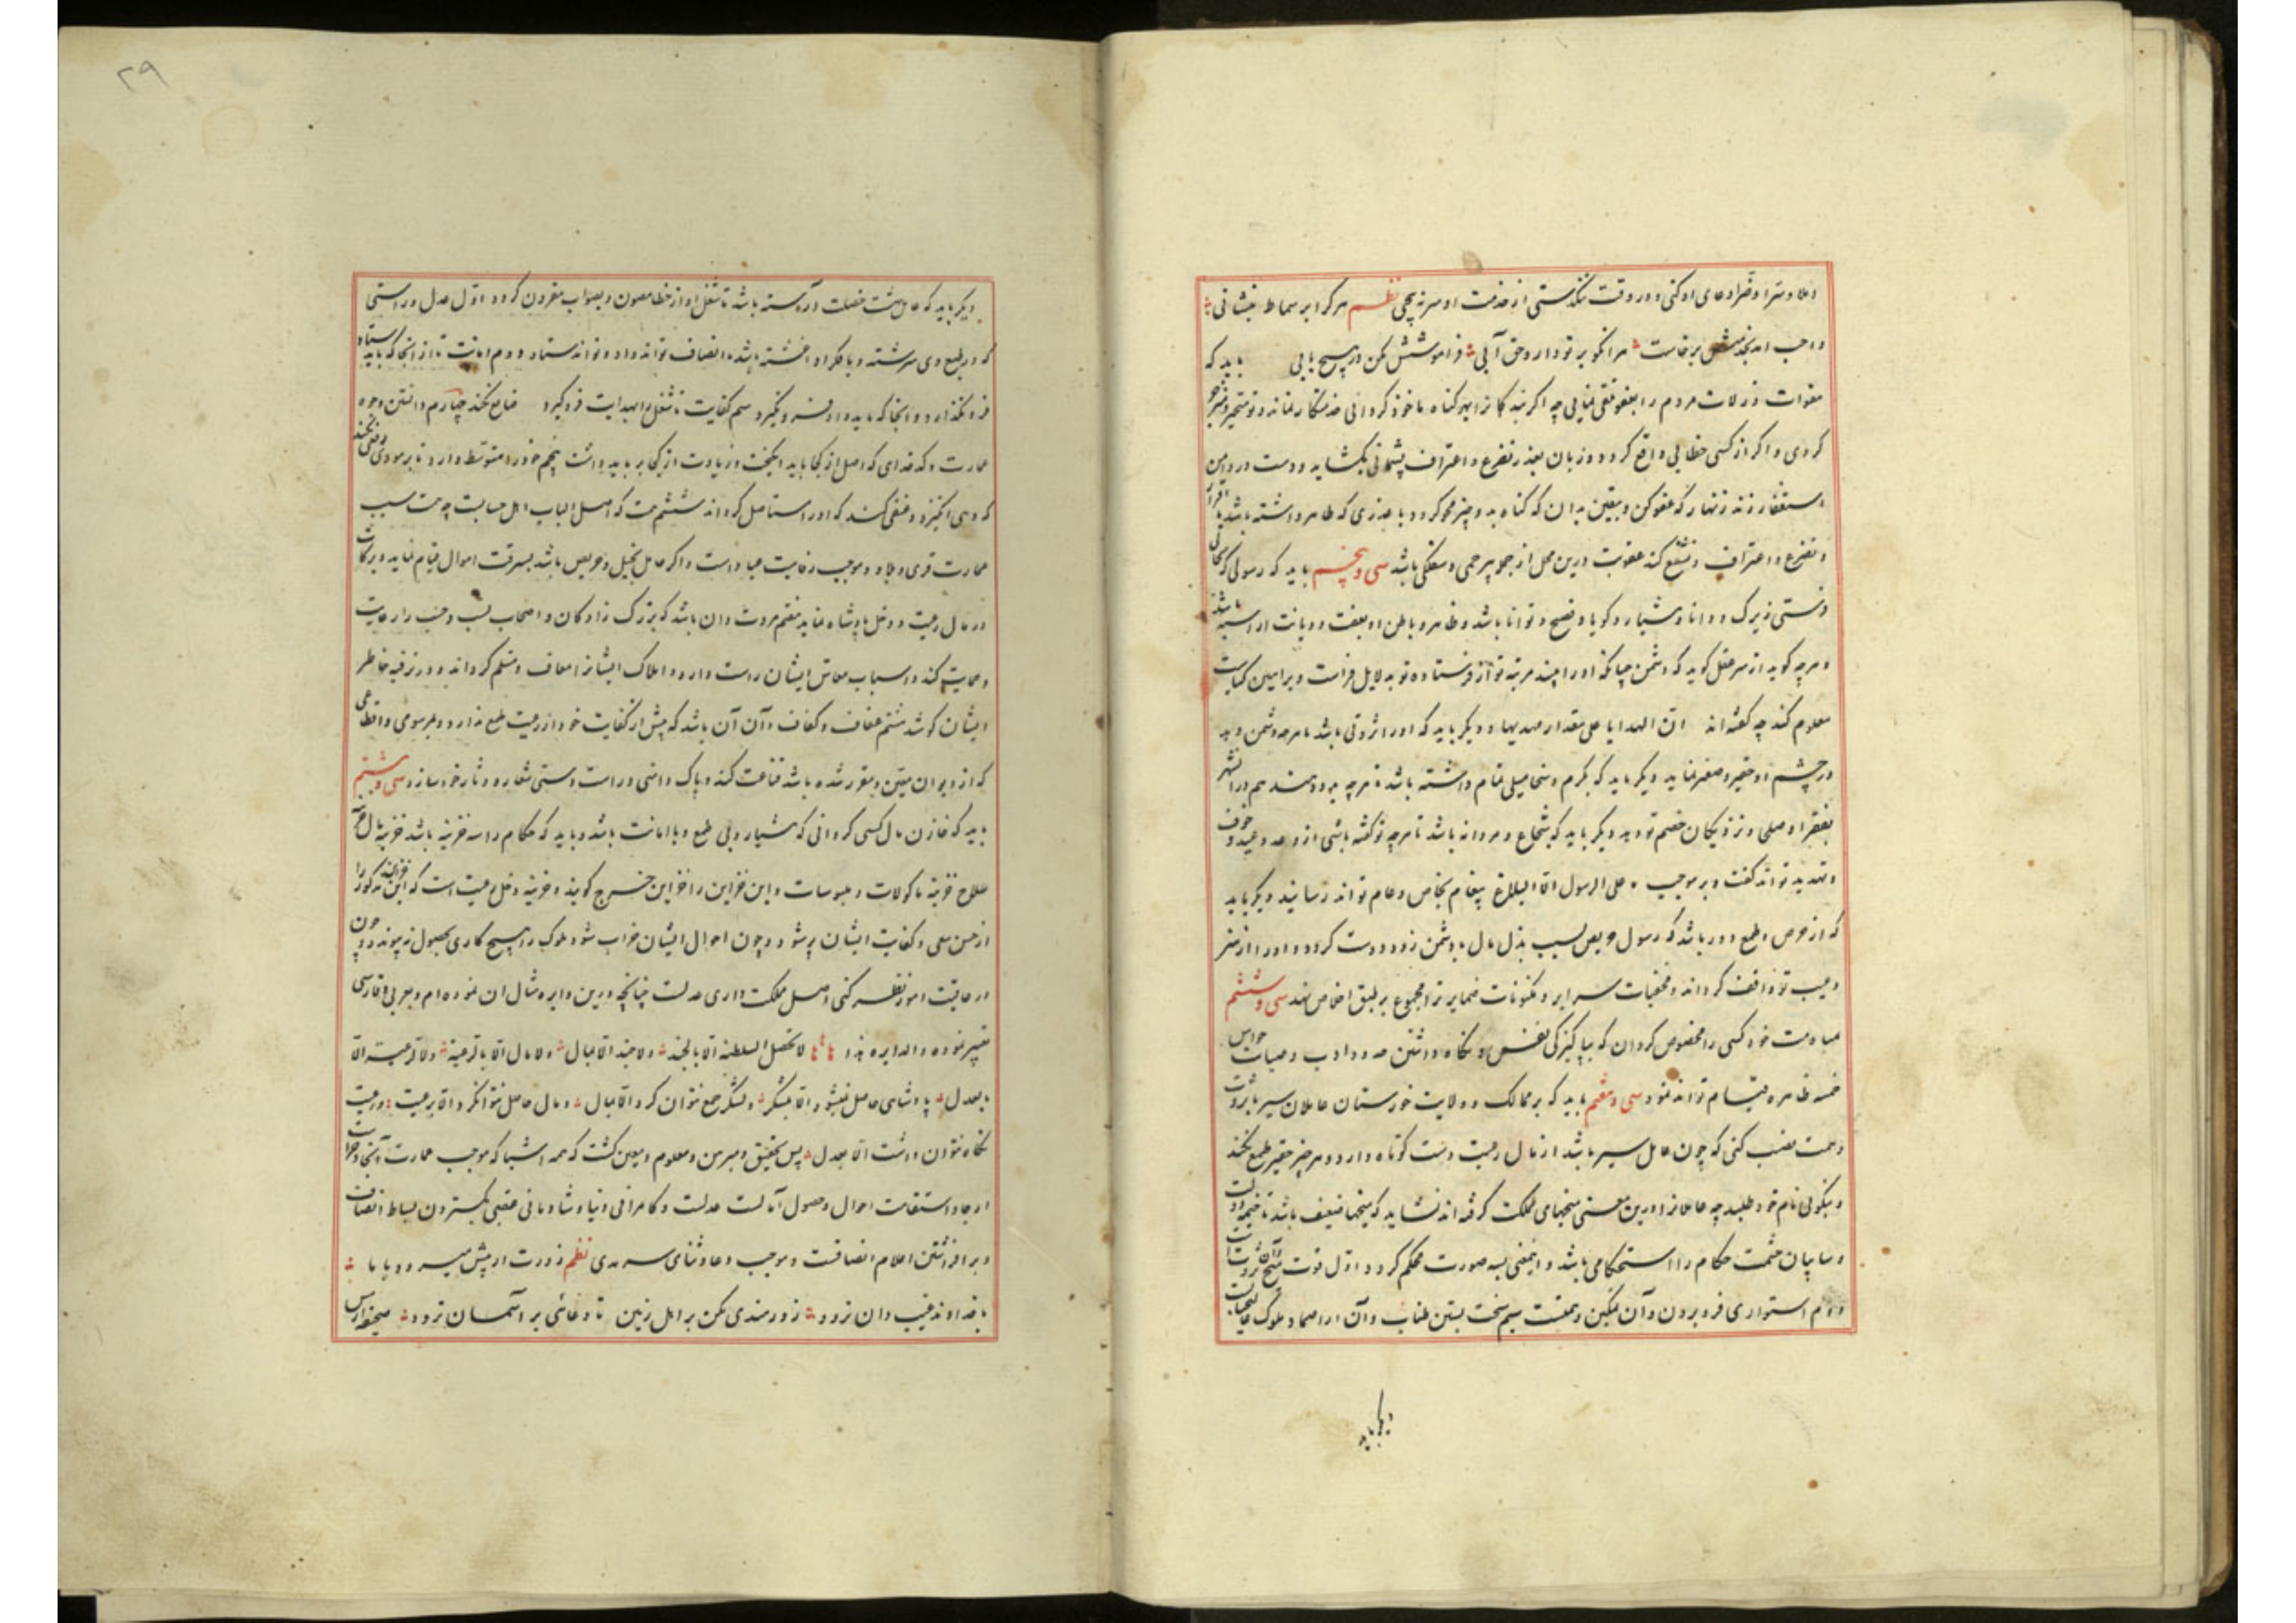 و در وقت تنگدستی از خدمت او سر نپیچی نظم هر کرا بر سماط بنشانی
واجب آمد بخدمتش برخاست هر آنکو بر تو دارد حق آبی فراموشش مکن در هیچ بابی باید که
زلات مردم را بعفو تلقی نمایی چه اگر بندگانرا بهر گناه ماخوذ گردانی خدمتکار نماند و تو متحیر
گردی و اگر از کسی خطایی واقع گردد و زبان بعذر تضرع و اعتراف پشیمانی بگشاید و دست در دامن
استغفار زند زنهار که عفو کن و بیقین بدان که گناه بدو چیز محو گردد یا عذری که ظاهر داشته باشد
و تضرع و اعتراف عقوبت درین محل از بیرحمی باشد سی و پنجم باید که رسولی که بجایی
فرستی زیرک و دانا و هشیار و گویا و فصیح و توانا باشد و ظاهر و باطن او بعفت و دیانت آراسته باشد
و هرچه گوید از سر عقل گوید که دشمن او را چند مرتبه تو از فرستاده تو بدلایل فراست و براهین کیاست
معلوم کند چه گفته‌اند ان الهدایا علی مقدار مهدیها و دیگر باید که او را ثروتی باشد تا هرچه دشمن دهد
در چشم او حقیر و صغیر نماید دیگر باید که بکرم و سخا میلی تمام داشته باشد تا هرچه بدو دهند هم در آن شهر
بفقرا و صلحا و نزدیکان خصم تو دهد دیگر باید که شجاع و مردانه باشد تا هرچه تو گفته باشی از وعد و وعید و خوف
و تهدید تواند گفت و بر موجب ما علی الرسول الا البلاغ پیغام بخاص و عام تواند رسانید دیگر باید
که از حرص و طمع دور باشد که رسول حریص بسبب بذل مال با دشمن زود دوست گردد و او را از سر
و عیب تو واقف گرداند و مخفیات سرایر و مکنونات ضمایر ترا مجموع بر طبق اخلاص نهد سی و ششم
خود کسی را مخصوص گردان که بپاکیزگی نفس و نگاه داشتن حدود ادب و صیانت حواس
خمسه ظاهره قیام تواند نمود سی و هفتم باید که بر ممالک و ولایت خوزستان عاملان سیر با ثروت
و همت نصب کنی که چون عامل سیر باشد از مال رعیت دست کوتاه دارد و هرچیز حقیر طمع نکند
و نیکویی نام خود طلبد چه عاملانرا درین معنی میخهای مملکت گرفته‌اند نشاید که میخها ضعیف باشد تا خیمه دولت
و سایبان حشمت حکام را استحکامی باشد و این معنی بسه صورت محکم گردد اول قوت میخ و آن ثروت است
دوم استواری فرو بردن و آن تمکین و همتست سیم سخت بستن طناب و آن
دیگر باید
۲۹
دیگر باید که عامل هشت خصلت آراسته باشد تا شغل او از خطا مصون و بصواب مقرون گردد اول عدل و راستی
که در طبع وی سرشته و با فکر او آغشته باشد تا انصاف تواند داد و تواند ستاد دوم امانت تا از آنجا که باید ستاد
فرو نگذارد و آنجا که باید داد فرو نگیرد سیم کفایت تا شغل را بهدایت فرو گیرد ضایع نکند چهارم دانستن وجوه
عمارت و کدخدای که اصل از کجا باید انگیخت و زیادت از کجا برباید داشت پنجم خود را متوسط دارد تا بر مودی
که وهی انگیزد و خللی کند که او را مستاصل گرداند ششم همت که چه همت سبب
عمارت قری و بلاد و موجب رفاهیت عباد است و اگر عامل بخیل و حریص باشد بسرقت اموال قیام نماید و برکات
در مال رعیت و دخل پادشاه نماند هفتم مروت و آن باشد که بزرگ زادگان و اصحاب نسب و حسب را رعایت
و حمایت کند و اسباب معاش ایشان راست دارد و املاک ایشانرا معاف و مسلم گرداند و در ترفیه خاطر
ایشان کوشد هشتم عفاف و کفاف و آن آن باشد که بیش از کفایت خود از رعیت طمع ندارد و بمرسومی و اقطاعی
که از دیوان معین و مقرر شده باشد قناعت کند و پاک دامنی و راست دستی شعار و دثار خود سازد سی و هشتم
باید که خازن مال کسی گردانی که هشیار و بی طمع و باامانت باشد و باید که حکام را سه خزینه باشد خزینه مال خزینه
سلاح خزینه ماکولات و ملبوسات و این خزاین را خزاین خرج گویند و خزینه دخل رعیت است که این خزاین مذکور را
از حسن سعی و کفایت ایشان پر شود و چون احوال ایشان خراب شود ملوک را هیچ کاری بحصول نپیوندد و چون
در عاقبت امور نظر کنی اصل مملکت داری عدلست چنانچه درین دایره مثال آن نموده‌ام و بعربی و فارسی
تعبیر نموده و الدایره هذه لا تحصل السلطنة الا بالجند ولا جند الا بمال ولا مال الا بالرعیة ولا رعیة الا
بعدل پادشاهی حاصل نمیشود الا بلشکر و لشکر جمع نتوان کرد الا بمال و مال حاصل نتوان کرد الا برعیت و رعیت
نگاه نتوان داشت الا بعدل پس بتحقیق و مبرهن و معلوم و معین گشت که همه اشیا که موجب عمارت
و استقامت احوال و حصول آمال است عدلست و کامرانی دنیا و شادمانی عقبی بگستردن بساط انصاف
و برافراشتن اعلام انصافست و موجب دعا و ثنای سرمدی نظم زورت ار پیش میرود با ما
با خداوند غیب دان نرود زورمندی مکن بر اهل زمین تا دعائی بر آسمان نرود